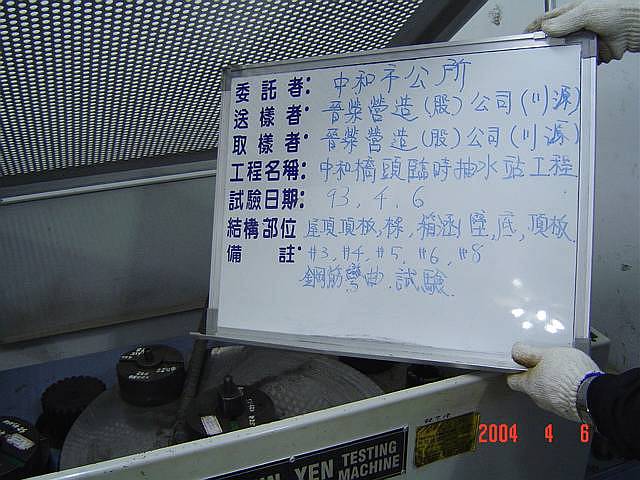 委託者: 中和市公所
送樣者: 晉榮營造(股)公司(川源)
取樣者: 晉榮營造(股)公司(川源)
工程名稱: 中和橋頭臨時抽水站工程
試驗日期: 93, 4, 6
結構部位 屋頂頂板, 樑, 箱涵, 底, 頂板
備註: #3, #4, #5, #6, #8
鋼筋彎曲 試驗
YEN TESTING MACHINE
2004 4 6